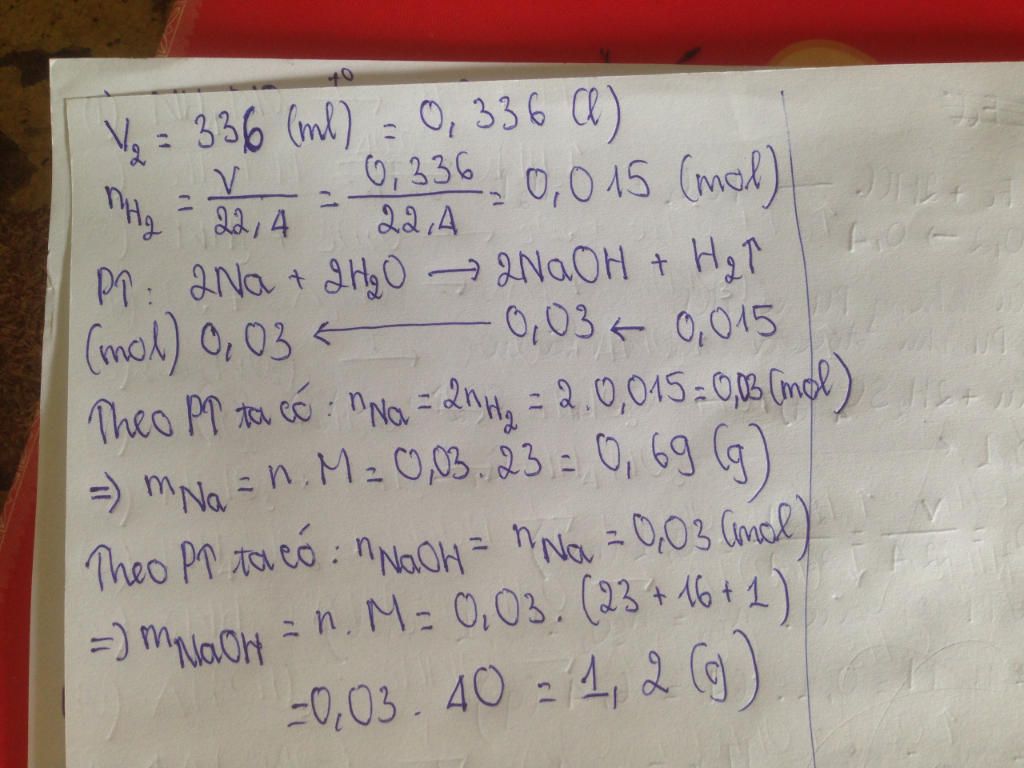 V₂ = 336 (ml) = 0,336 (l)
nH₂ = V/22,4 = 0,336/22,4 = 0,015 (mol)
PT: 2Na + 2H₂O → 2NaOH + H₂↑
(mol) 0,03 ← 0,03 ← 0,015
Theo PT ta có : nNa = 2nH₂ = 2.0,015 = 0,03 (mol)
=) mNa = n.M = 0,03.23 = 0,69 (g)
Theo PT ta có : nNaOH = nNa = 0,03 (mol)
=) mNaOH = n.M = 0,03.(23+16+1)
=0,03.40 = 1,2 (g)